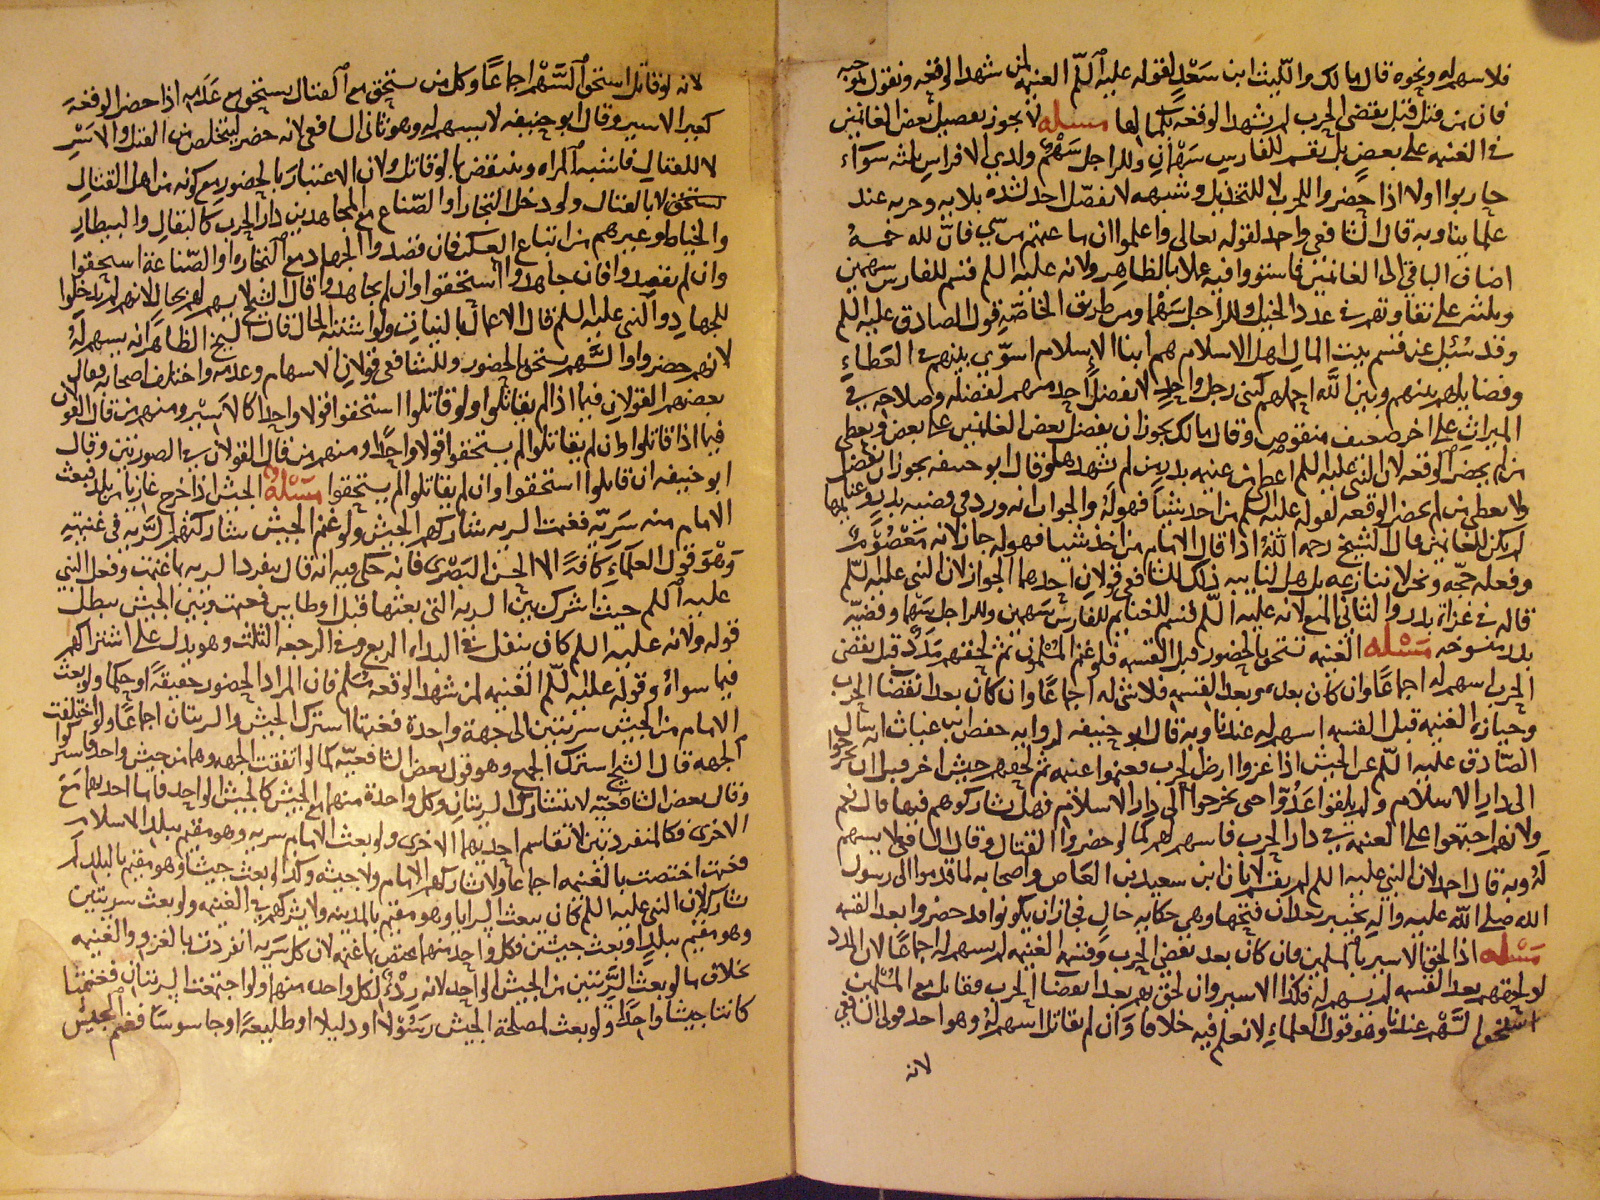 فلا سهم له ونحوه قال مالك والليث ابن سعد لقوله عليه السلم الغنيمة لمن شهد الوقعه ونقول بموجبه
فان من قتل قبل تقضى الحرب لم يشهد الوقعه بكمالها مسئله لا يجوز تفضيل بعض الغانمين
في الغنيمه على بعض بل يقسم للفارس سهمان وللراجل سهم ولذي الافراس ثلثه سواء
حاربوا اولا اذا حضروا للحرب لا للتخذيل وشبهه لا يفضل احد لشدة بلائه وحربه عند
علمائنا وبه قال الشافعي واحمد لقوله تعالى واعلموا ان ما غنمتم من شي فان لله خمسه
اضاف الباقي الى الغانمين فاستووا فيه عملا بالظاهر ولانه عليه السلم قسم للفارس سهمين
وثلثه على تفاوتهم في عدد الخيل وللراجل سهما ومن طريق الخاصة قول الصادق عليه السلم
وقد سئل عن قسم بيت المال اهل الاسلام هم ابنا الاسلام اسوي بينهم في العطاء
وفضائلهم بينهم وبين الله اجعلهم كبني رجل واحد لا نفضل احد منهم لفضله وصلاحه في
الميراث على اخر ضعيف منقوص وقال مالك يجوز ان يفضل بعض الغانمين على بعض ويعطي
من لم يحضر الوقعه لان النبي عليه السلم اعطى من غنيمه بدر من لم يشهدها وقال ابو حنيفه يجوز ان يفضل
ولا يعطي من لم يحضر الوقعه لقوله عليه السلم من اخذ شيئا فهو له والجواب انه ورد في قضيه بدر وغنايمها
لم يكن للغانمين قال الشيخ رحمه الله اذا قال الامام من اخذ شيئا فهو له جاز لانه معصوم
وفعله حجه ونحن لا ننازعه بل هل لنايبه ذلك للشافعي قولان احدهما الجواز لان النبي عليه السلم
قاله في غزاة بدر والثاني المنع لانه عليه السلم قسم الغنايم للفارس سهمين وللراجل سهما وقضيه
بدر منسوخه مسئله الغنيمه تستحق بالحضور قبل القسمه فلو غنم المسلمون ثم لحقهم مدد قبل تقضى
الحرب اسهم له اجماعا وان كان بعده وبعد القسمه فلا شي له اجماعا وان كان بعد انقضا الحرب
وحيازة الغنيمه قبل القسمه اسهم له عندنا وبه قال ابو حنيفه لروايه حفص بن غياث انه سال
الصادق عليه السلم عن الجيش اذا غزوا ارض الحرب فغنموا غنيمه ثم لحقهم جيش اخر قبل ان يخرجوا
الى دار الاسلام ولم يلقوا عدوا حتى يخرجوا الى دار الاسلام فهل يشاركوهم فيها قال نعم
ولانهم اجتمعوا على الغنيمه في دار الحرب فاسهم لهم كما لو حضروا القتال وقال الشافعي لا يسهم
له وبه قال احمد لان النبي عليه السلم لم يقسم لابان بن سعيد بن العاص واصحابه لما قدموا الى رسول
الله صلى الله عليه واله بخيبر بعد ان فتحها وهي حكايه حال فجاز ان يكونوا قد حضروا بعد القسمه
مسئله اذا لحق الاسير بالمسلمين فان كان بعد تقضى الحرب وقسمه الغنيمه لم يسهم له اجماعا لان المدد
لو لحقهم بعد القسمه لم يسهم له فكذا الاسير وان لحق بهم بعد انقضا الحرب فقاتل مع المسلمين
استحق السهم عندنا وهو قول العلماء لا نعلم فيه خلافا وان لم يقاتل اسهم له وهو احد قولي الشافعي
لانه
لانه لو قاتل استحق السهم اجماعا وكل من يستحق مع القتال يستحق مع عدمه اذا حضر الوقعة
كغير الاسير وقال ابو حنيفه لا يسهم له وهو ثاني الشافعي لانه حضر ليتخلص من القتل والاسر
لا للقتال فاشبه المراه وينتقض بما لو قاتل ولان الاعتبار بالحضور مع كونه من اهل القتال
يستحق لا بالقتال ولو دخل التجار او الصناع مع المجاهدين دار الحرب كالبقال والبيطار
والخياط وغيرهم من اتباع العسكر فان قصدوا الجهاد مع التجارة او الصناعة استحقوا
وان لم يقصدوا فان جاهدوا استحقوا وان لم يجاهدوا قال الشيخ لا يسهم لهم بحال لانهم لم يدخلوا
للجهاد والنبي عليه السلم قال الاعمال بالنيات ولو اشتبه الحال قال الشيخ الظاهر انه يسهم له
لانهم حضروا والسهم يستحق بالحضور وللشافعي قولان الاسهام وعدمه واختلف اصحابه فقال
بعضهم القولان فيما اذا لم يقاتلوا ولو قاتلوا استحقوا قولا واحدا كالاسير ومنهم من قال القولان
فيما اذا قاتلوا وان لم يقاتلوا لم يستحقوا قولا واحدا ومنهم من قال القولان في الصورتين وقال
ابو حنيفه ان قاتلوا استحقوا وان لم يقاتلوا لم يستحقوا مسئلة الجيش اذا خرج غازيا من بلد فبعث
الامام منه سرية فغنمت السريه شاركهم الجيش ولو غنم الجيش شاركتهم السريه في غنيمته
وهو قول العلماء كافة الا الحسن البصري فانه حكي فيه انه قال ينفرد السريه بما غنمت وفعل النبي
عليه السلم حيث اشرك بين السريه التي بعثها قبل اوطاس فغنمت وبين الجيش يبطل
قوله ولانه عليه السلم كان ينفل في البداه الربع وفي الرجعه الثلث وهو يدل على اشتراكهم
فيما سواه وقوله عليه السلم الغنيمه لمن شهد الوقعه مسلم فان المراد الحضور حقيقة او حكما ولو بعث
الامام من الجيش سريتين الى جهة واحدة فغنمتا اشترك الجيش والسريتان اجماعا ولو اختلفت
الجهه قال الشيخ اشترك الجميع وهو قول بعض الشافعيه كما لو اتفقت الجهه وهما من جيش واحد فاشتركوا
وقال بعض الشافعيه لا تتشارك السريتان وكل واحدة منهما مع الجيش كالجيش الواحد فاما احديهما مع
الاخرى فكالمنفردتين لا تقاسم احديهما الاخرى ولو بعث الامام سريه وهو مقيم ببلد الاسلام
فغنمت اختصت بالغنيمه اجماعا ولا يشاركهم الامام ولا جيشه وكذا لو بعث جيشا وهو مقيم بالبلد لم
يشاركه لان النبي عليه السلم كان يبعث السرايا وهو مقيم بالمدينه ولا يشركهم في الغنيمه ولو بعث سريتين
وهو مقيم ببلد او بعث جيشين فكل واحد منهما مختص بما غنمه لان كل سريه انفردت بالغزو والغنيمه
بخلاف ما لو بعث السريتين من الجيش الواحد لانه ردء لكل واحده منهما ولو اجتمعت السريتان فغنمتا
كانتا جيشا واحدا ولو بعث لمصلحة الجيش رسولا او دليلا او طليعة او جاسوسا فغنم الجيش